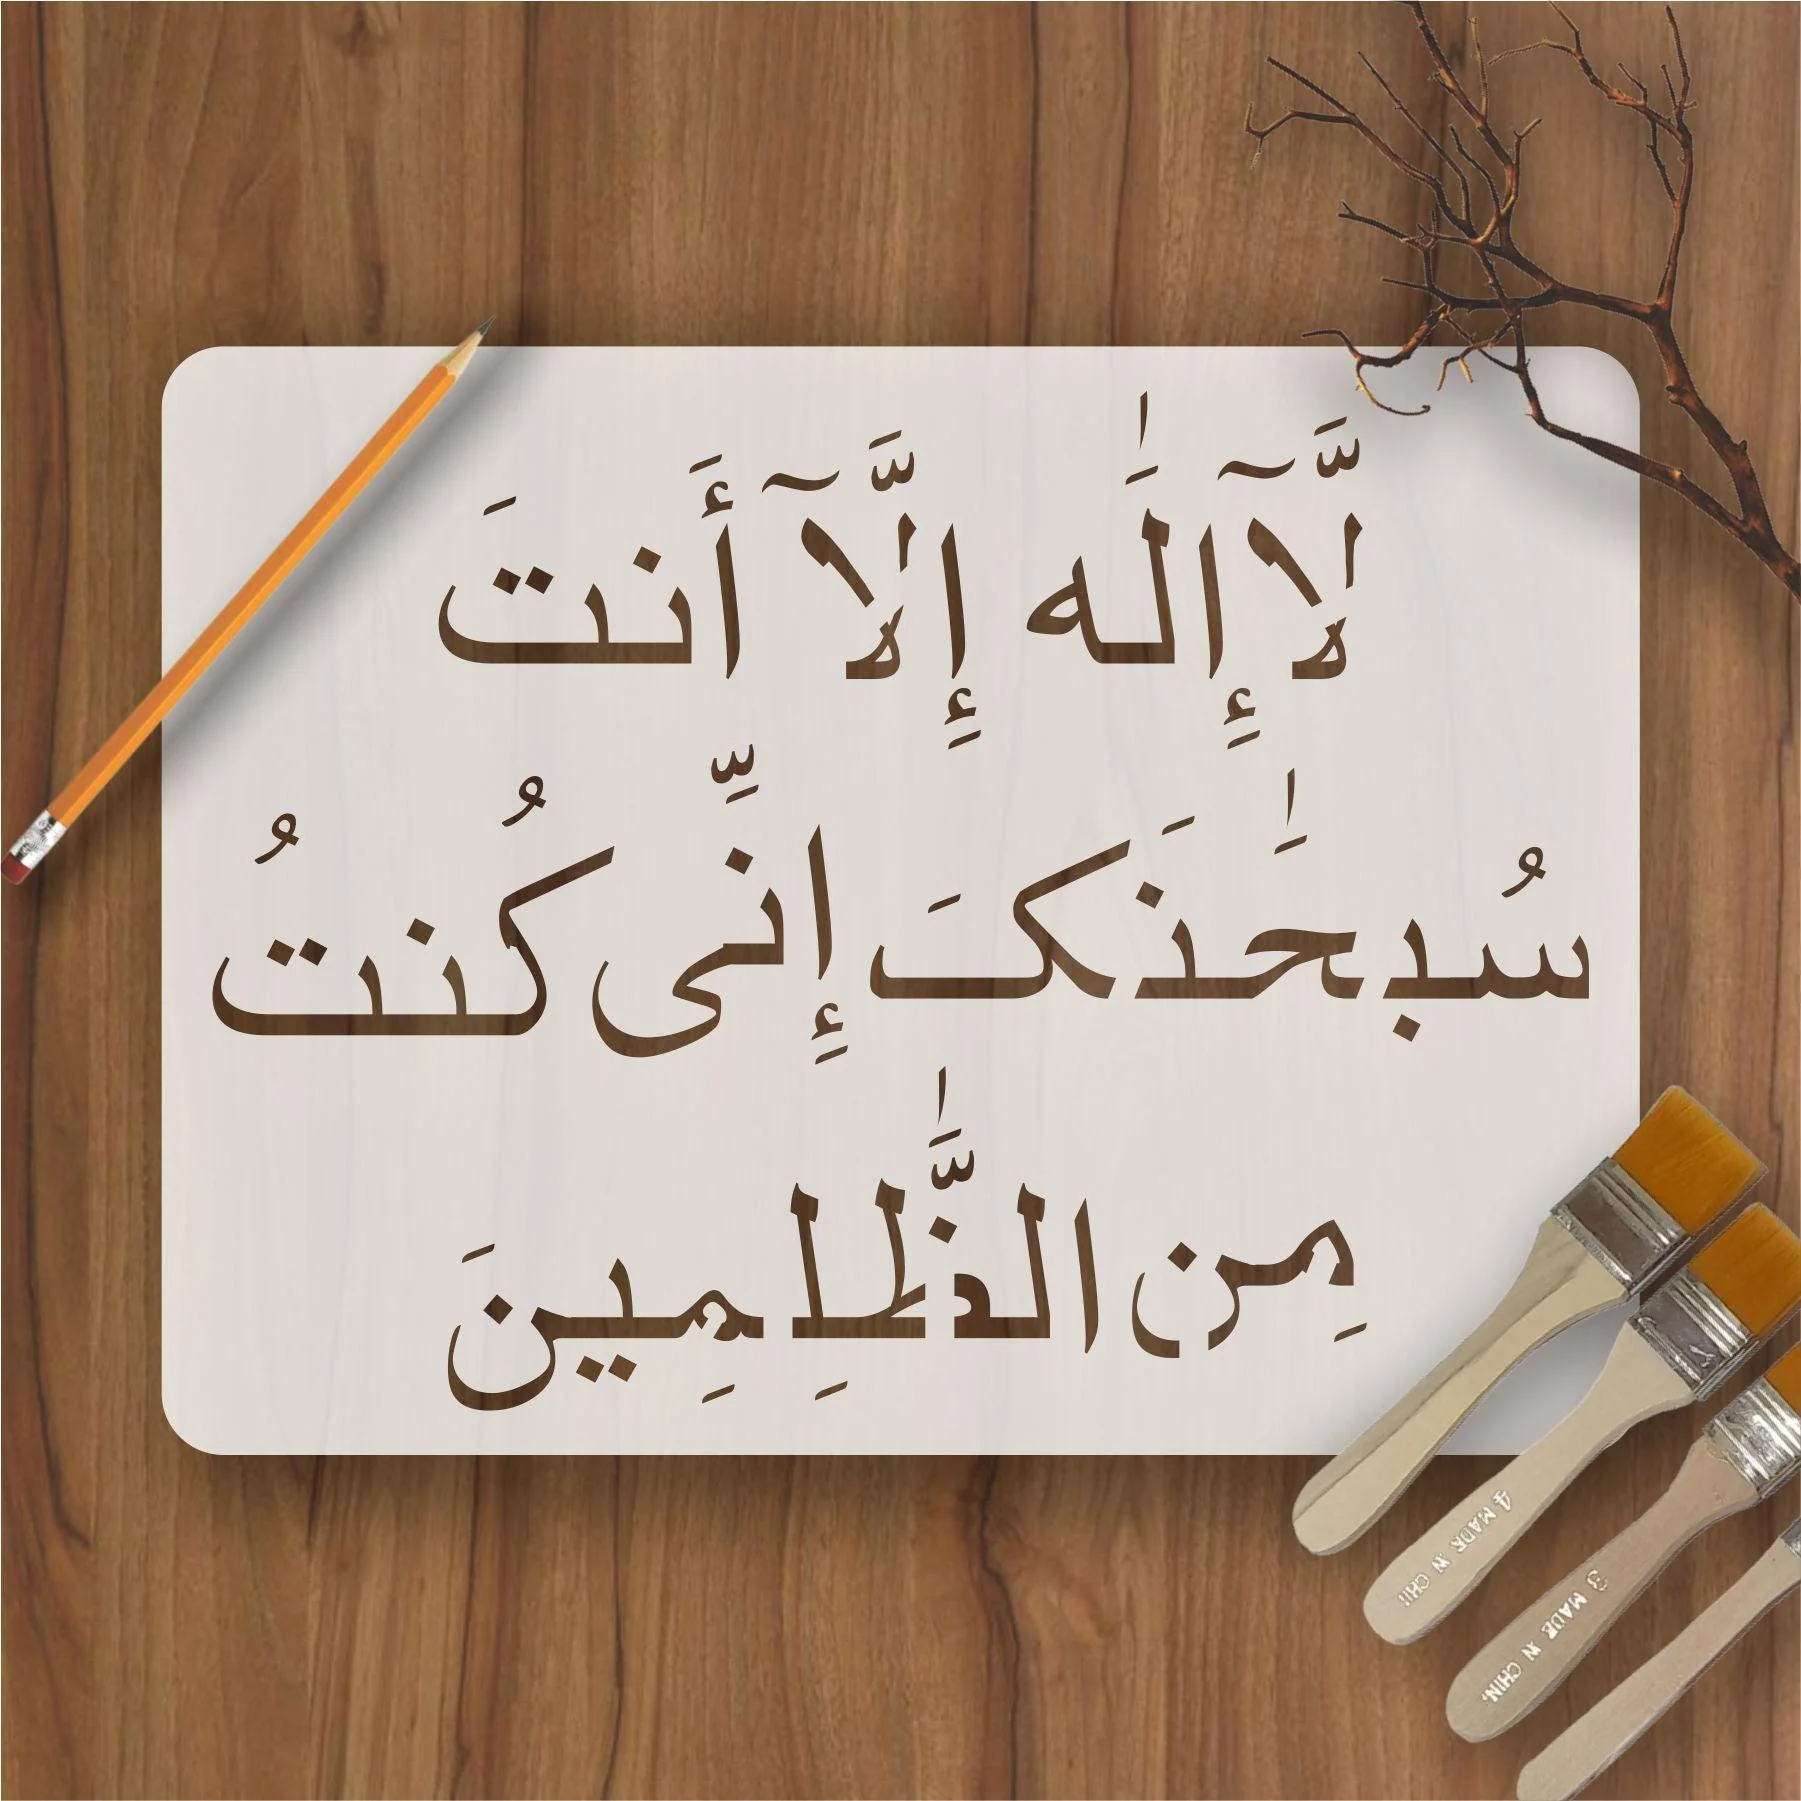 لَّآ إِلَٰه إِلَّآ أَنتَ
سُبحَٰنَکَ إِنِّی کُنتُ
مِن الظَّٰلِمِینَ
4 MADE IN CHI
3 MADE IN CHIN.